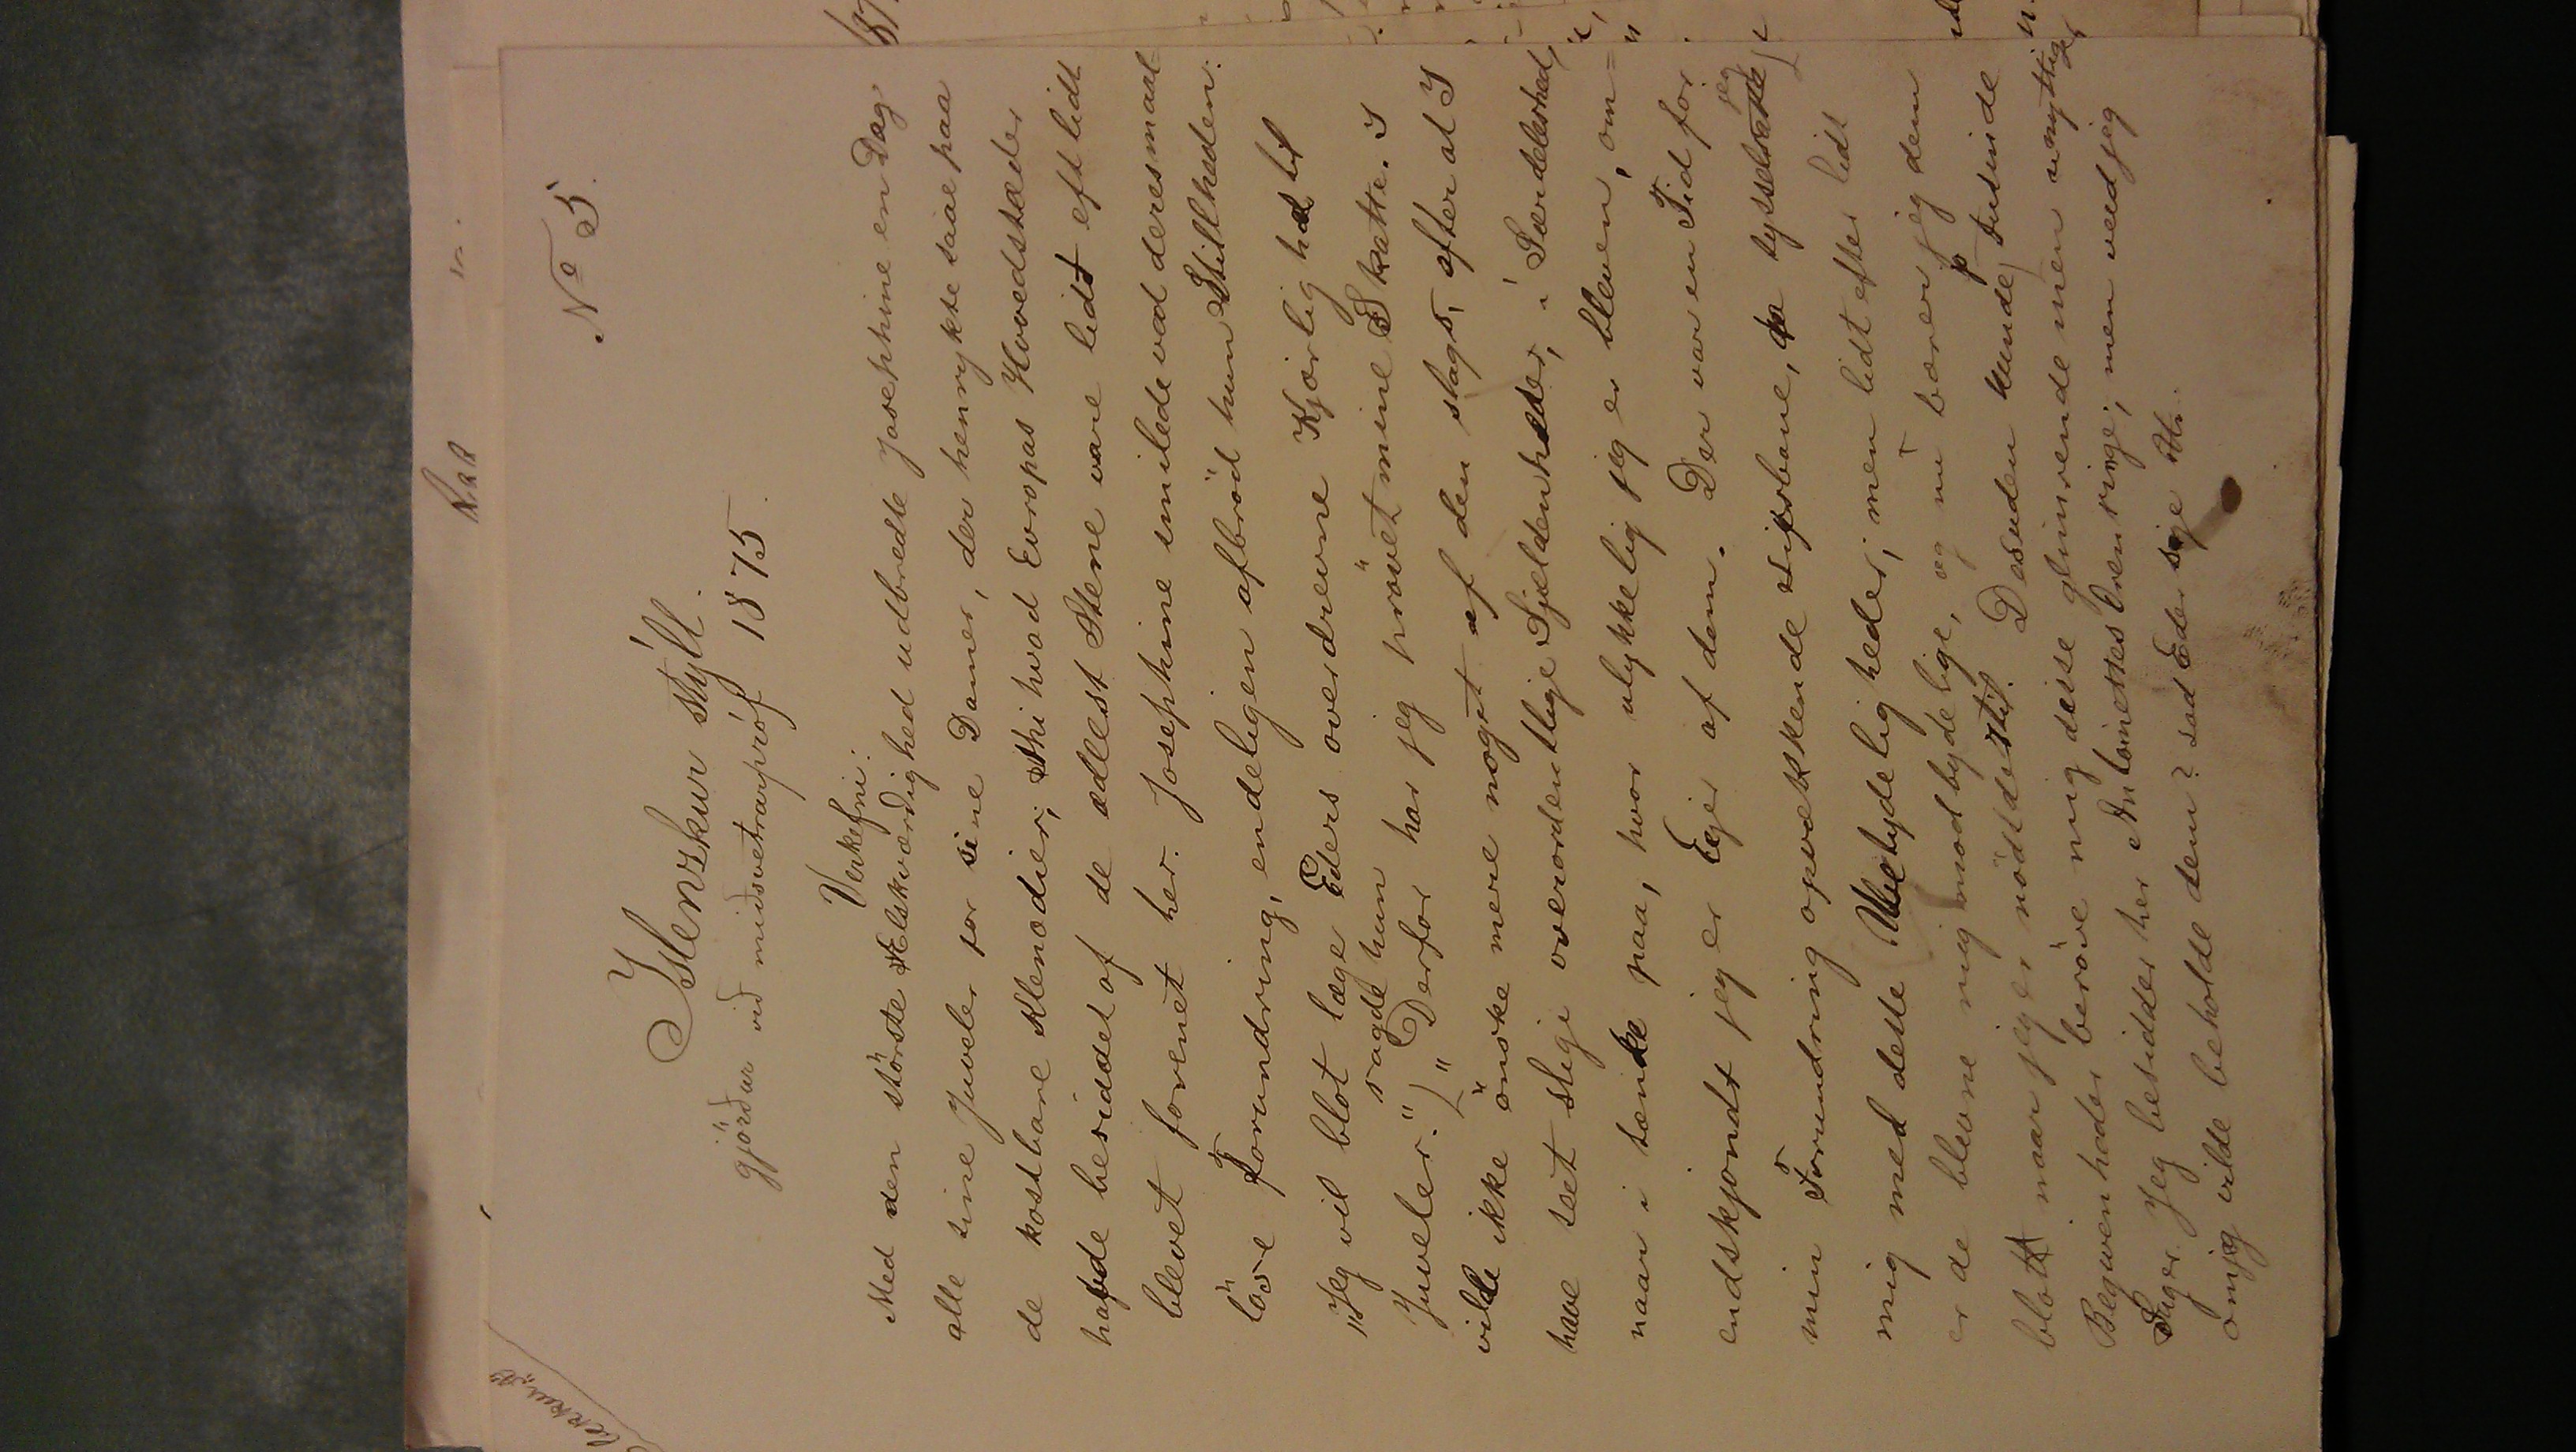 No 5.
Islenzkur stýll.
gjörður við miðsvetrarpróf 1875.
Verkefni:
Med den störste Elskværdighed udbredte Josephine en Dag
alle sine Juveler for sine Damer, der henrykte saae paa
de kostbare Klenodier; thi hvad Evropas Hovedstæder
hafde besiddet af de ædlest Stene vare lidt eft lidt
blevet forenet her. Josephine smilede vad deres maal-
löse Forundring, endeligen afbröd hun Stillheden.
"Jeg vil blot læge Eders overdrevne Kjörlighed til
Juveler." sagde hun "Derfor har jeg prövet mine Skatte. I
vilde ikke önske mere noget af den slags, efter at I
have set slige overordentlige Sjeldenheder, i Særdeleshed,
naar i tænke paa, hvor ulykkelig jeg er bleven, om=
endskjondt jeg er Ejer af dem. Der var en Tid for
min Forundring opvækkende sifrbane, da sysselsatte jeg
mig med dette Ubetydeligheder; men lidt efter lidt
er de blevne mig modbydelige, og nú bærer jeg dem
blott naar jeg er nöddte til. Desuden kunde tusinde
Begivenheder beröve mig disse glimrende men unyttige
Sager. Jeg besidder her Antoinettes Örenringe; men ved jeg
om jeg vilde beholde dem? lad Eder sige Ar.